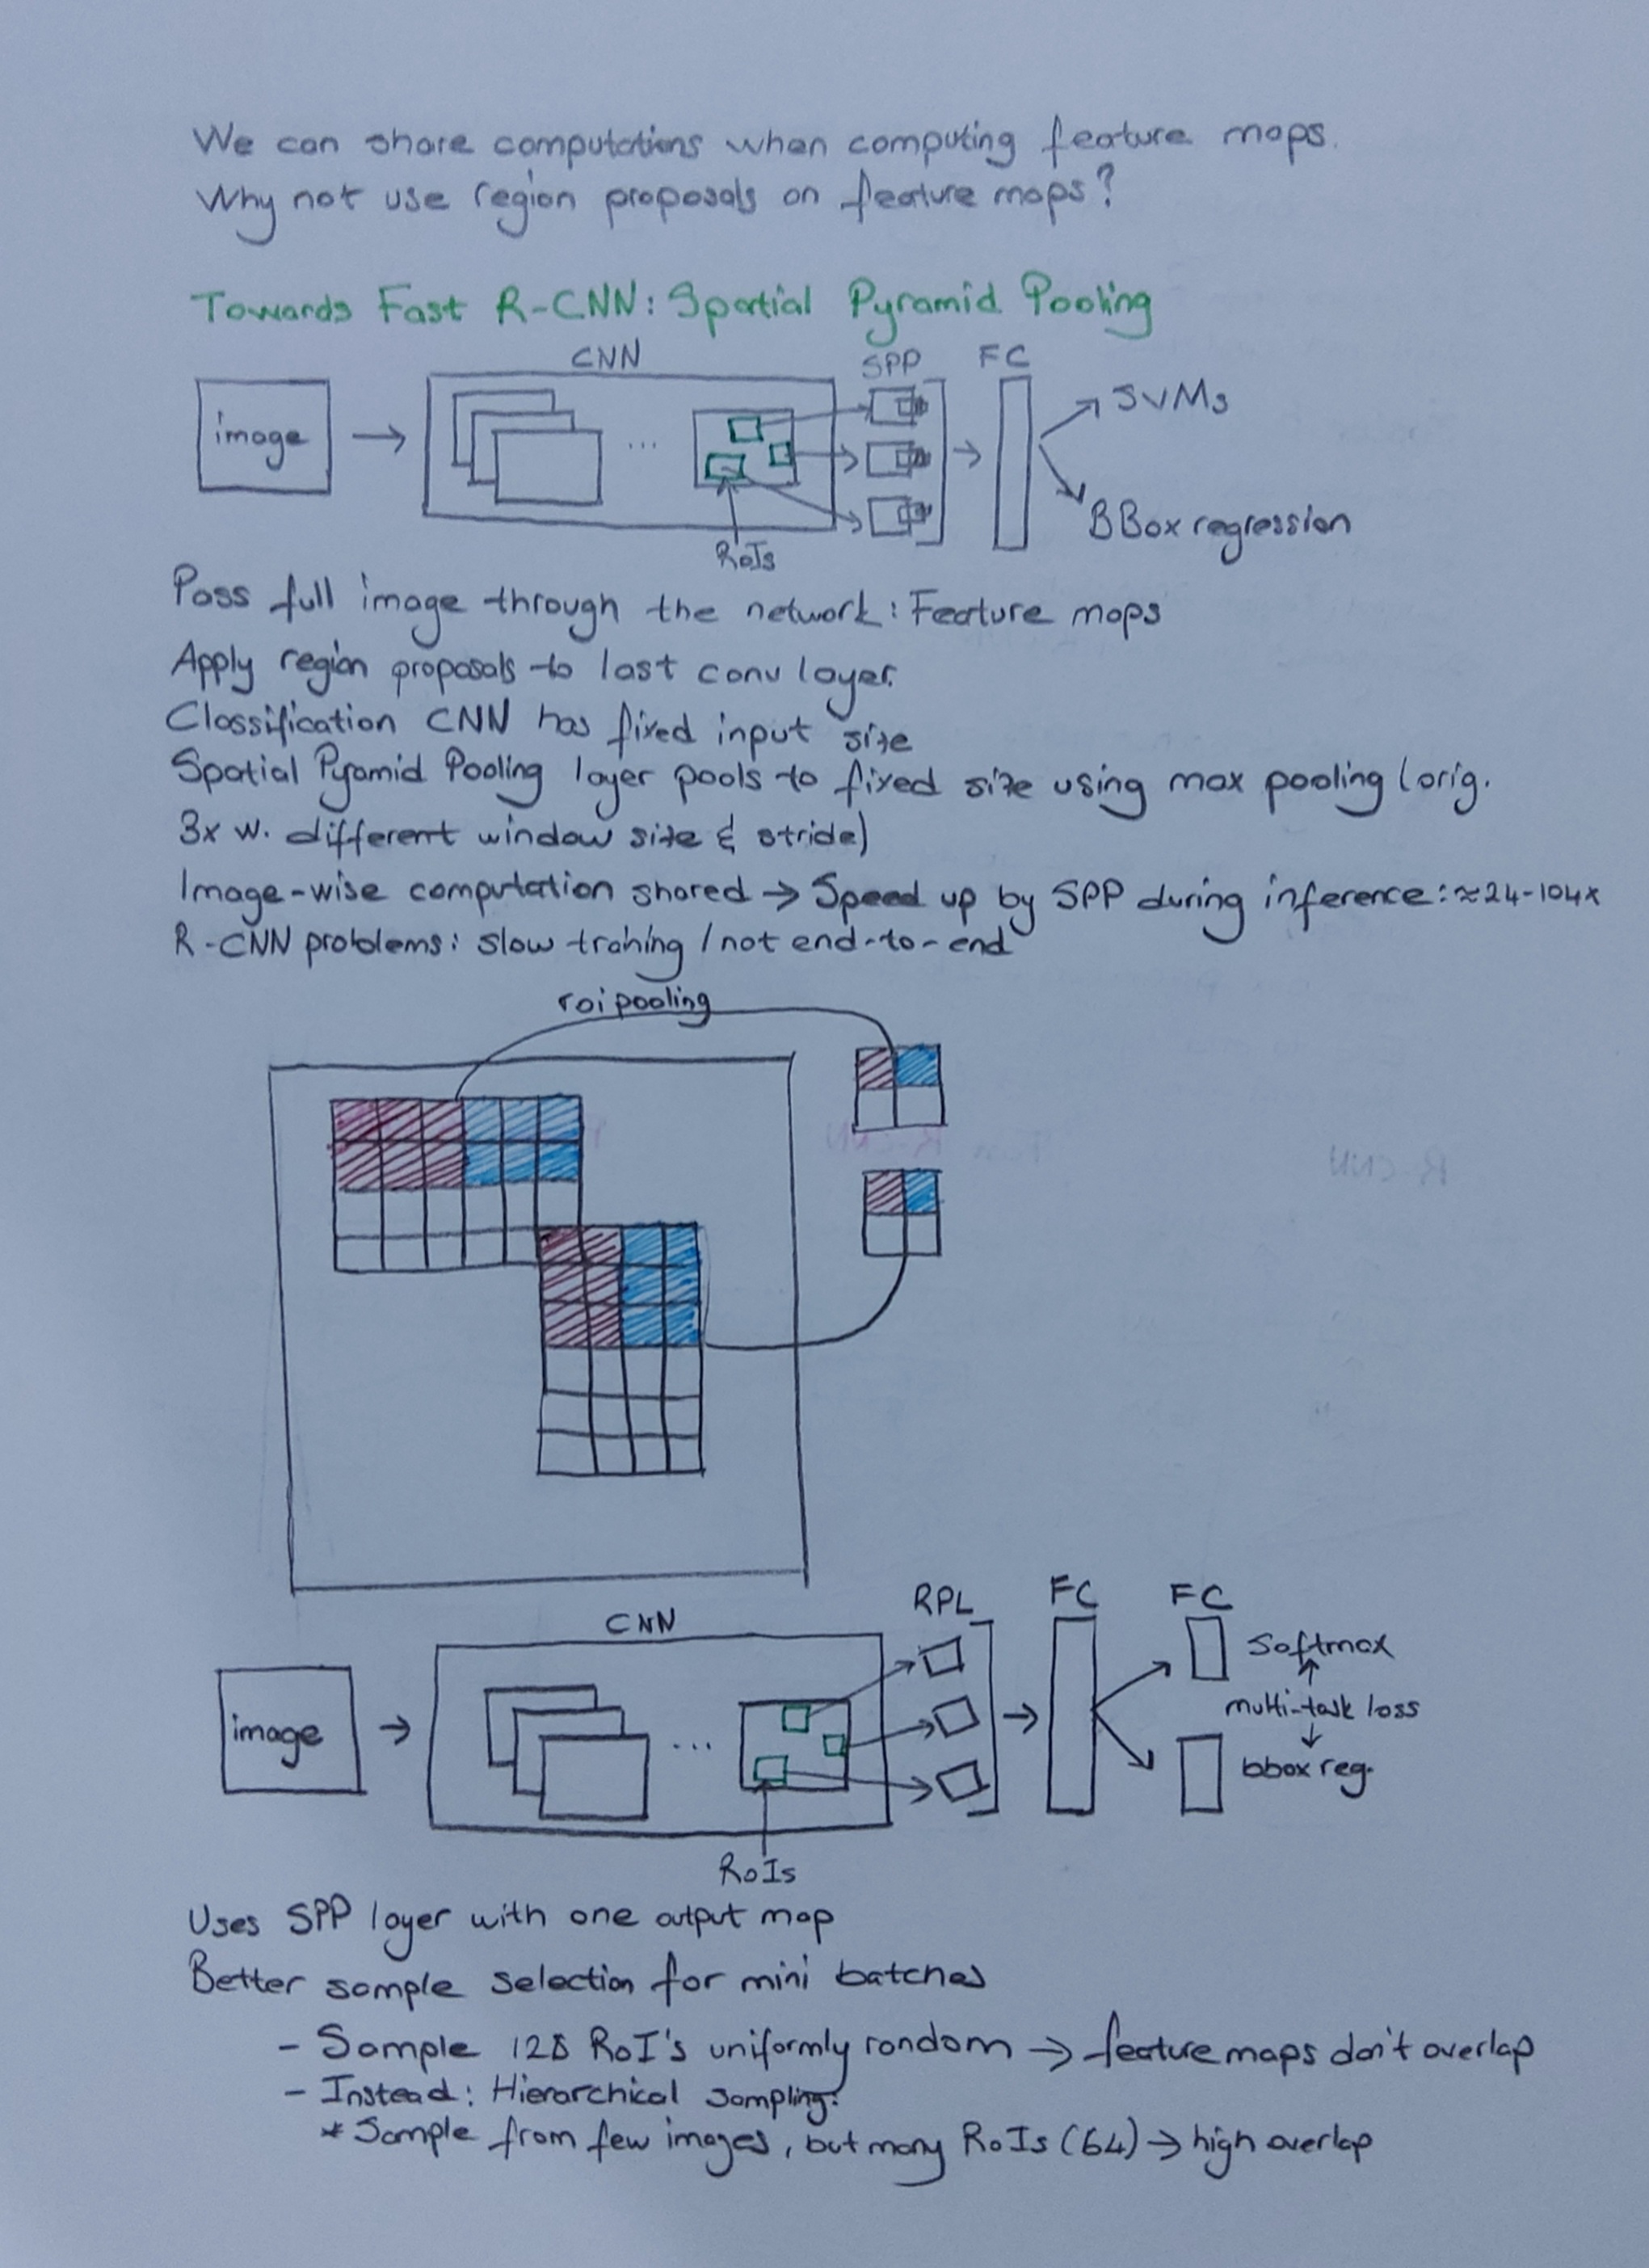 We can share computations when computing feature maps.
Why not use region proposals on feature maps?
Towards Fast R-CNN: Spatial Pyramid Pooling
CNN
SPP
FC
image
...
SVMs
BBox regression
RoIs
Pass full image through the network: Feature maps
Apply region proposals to last conv layer.
Classification CNN has fixed input size
Spatial Pyramid Pooling layer pools to fixed size using max pooling (orig.
3x w. different window size & stride)
Image-wise computation shared → Speed up by SPP during inference: ≈24-104x
R-CNN problems: slow training / not end-to-end
roi pooling
RPL
FC
FC
CNN
image
...
Softmax
multi-task loss
bbox reg.
RoIs
Uses SPP layer with one output map
Better sample selection for mini batches
- Sample 128 RoI's uniformly random → feature maps don't overlap
- Instead: Hierarchical sampling:
* Sample from few images, but many RoIs (64) → high overlap